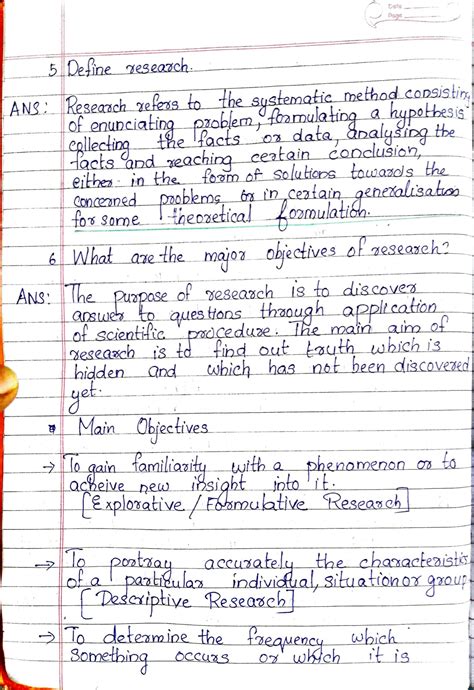 Date
Page
5 Define research.
ANS: Research refers to the systematic method consisting
of enunciating problem, formulating a hypothesis
collecting the facts or data, analysing the
facts and reaching certain conclusion,
either in the form of solutions towards the
concerned problems or in certain generalisation
for some theoretical formulation.
6 What are the major objectives of research?
ANS: The purpose of research is to discover
answer to questions through application
of scientific procedure. The main aim of
research is to find out truth which is
hidden and which has not been discovered
yet.
Main Objectives
→ To gain familiarity with a phenomenon or to
acheive new insight into it.
[Explorative / Formulative Research]
→ To portray accurately the characteristics
of a particular individual, situation or group
[Descriptive Research]
→ To determine the frequency which
something occurs or which it is